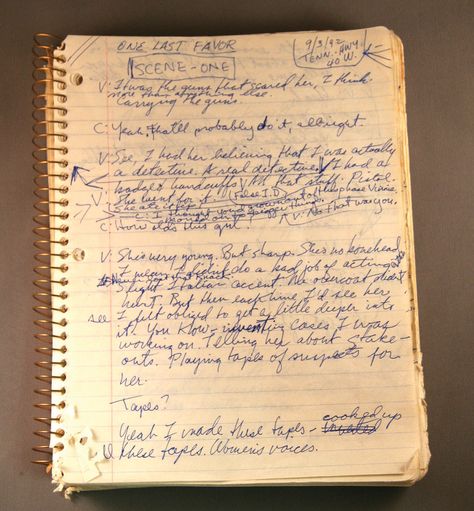 ONE LAST FAVOR
9/3/92
TENN. HWY
40 W.
SCENE-ONE
V: It was the guns that scared her, I think
more than anything else.
Carrying the guns.
C: Yeah that'll probably do it, allright.
V: See, I had her believing that I was actually
a detective. A real detective. I had a
badge & handcuffs & all that stuff. Pistol.
She went for it. False I.D.
She ate it up.
C: I thought your
V: No that was you.
C: How old's this girl?
V: She's very young. But sharp. She's no bonehead,
I mean I didn't do a bad job of acting.
Slight Italian accent. The overcoat didn't
hurt. But then each time I'd see her
see I felt obliged to get a little deeper into
it. You know - inventing cases I was
working on. Telling her about stake-
outs. Playing tapes of suspects for
her.
Tapes?
Yeah I made these tapes - cooked up
invented
these tapes. Women's voices.